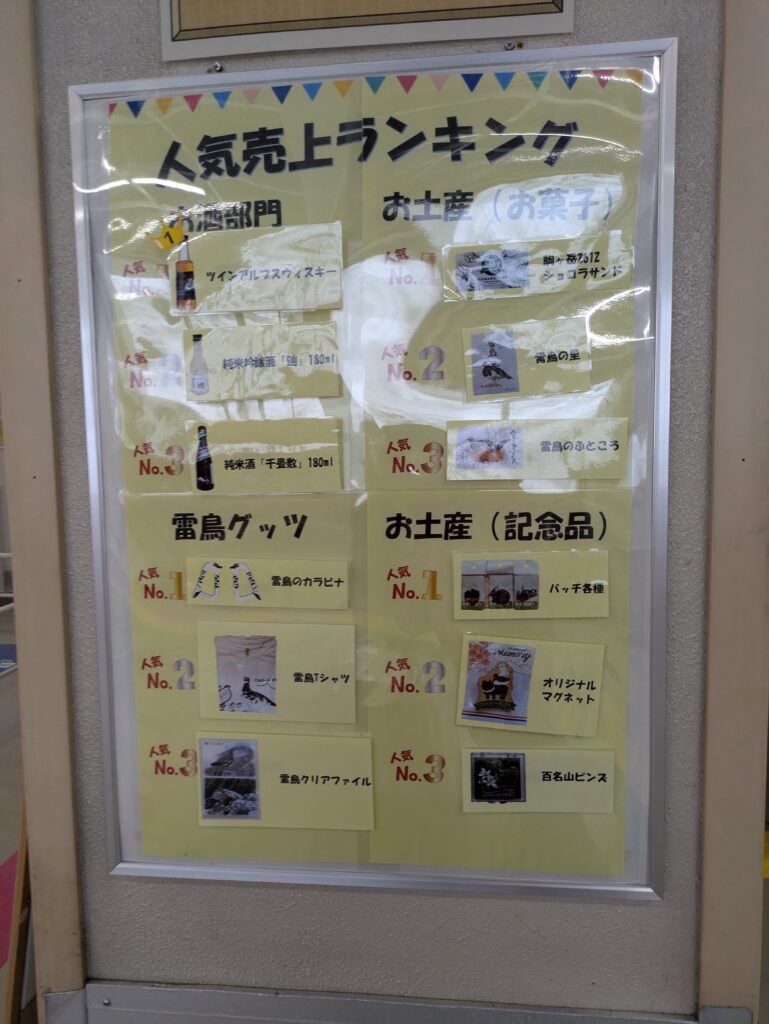 人気売上ランキング
お酒部門
1
人気
No.1
ツインアルプスウィスキー
人気
No.2
純米吟醸酒「 」180ml
人気
No.3
純米酒「千畳敷」180ml
お土産(お菓子)
人気
No.1
駒ヶ岳2612
ショコラサンド
人気
No.2
雷鳥の里
人気
No.3
雷鳥のふところ
雷鳥グッツ
人気
No.1
雷鳥のカラビナ
人気
No.2
雷鳥Tシャツ
人気
No.3
雷鳥クリアファイル
お土産(記念品)
人気
No.1
バッチ各種
人気
No.2
Memory
オリジナル
マグネット
人気
No.3
百名山ピンズ